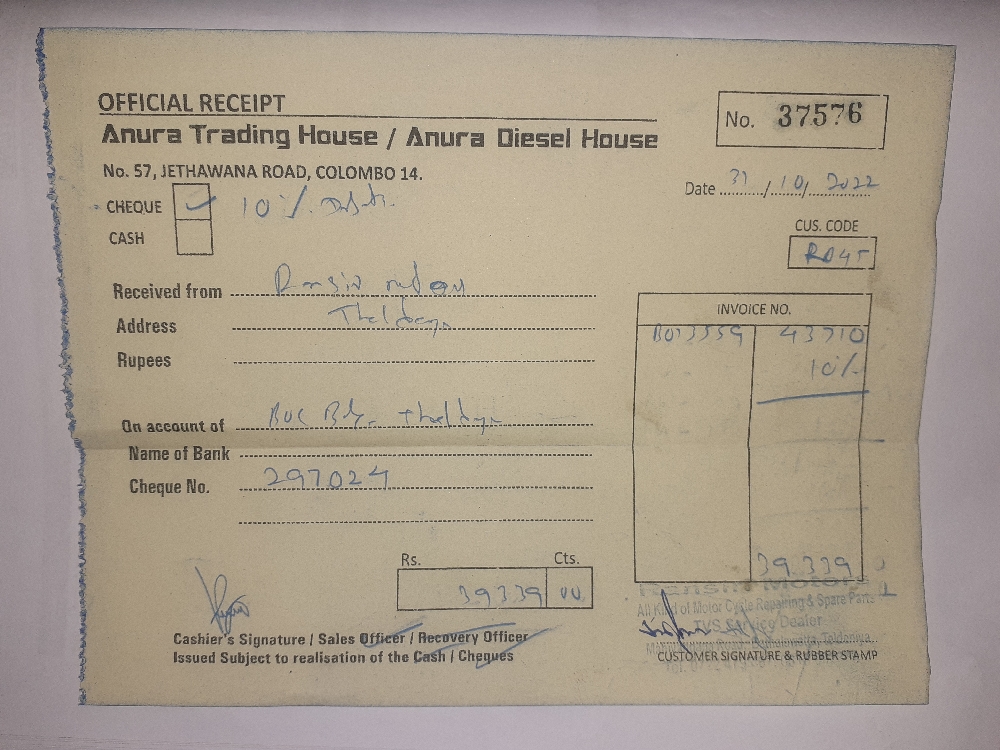 OFFICIAL RECEIPT
Anura Trading House / Anura Diesel House
No. 37576
No. 57, JETHAWANA ROAD, COLOMBO 14.
Date 31/10/2022
CHEQUE 10%
CASH
CUS. CODE
R045
Received from
Address
Rupees
INVOICE NO.
B013559 43710
10%
On account of
Name of Bank
Cheque No. 297024
39339
Rs. Cts.
39339 00
Motors
All Kind of Motor Cycle Repairing & Spare Parts
TVS Service Dealer
Cashier's Signature / Sales Officer / Recovery Officer
Issued Subject to realisation of the Cash / Cheques
CUSTOMER SIGNATURE & RUBBER STAMP